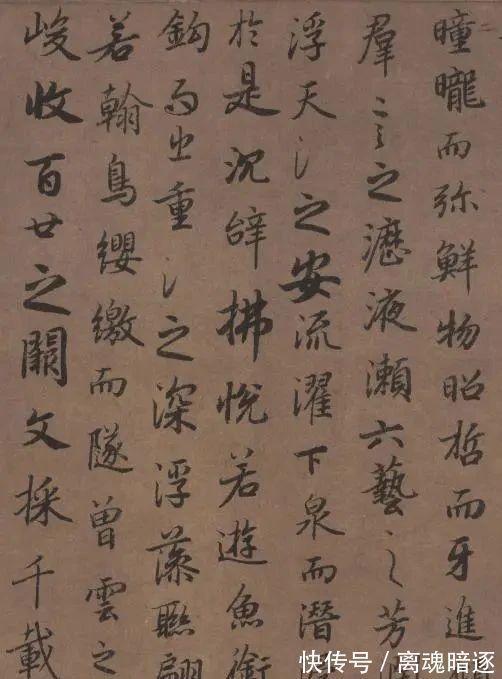 曈曨而弥鮮物昭晢而牙進
羣言之瀝液瀬六藝之芳
浮天氵之安流濯下泉而潛
於是沉辝拂悅若遊魚銜
鈎而出重氵之深浮藻聮翩
若翰鳥纓繳而隧曾雲之
峻收百廿之闕文採千載
快传号 / 离魂暗逐